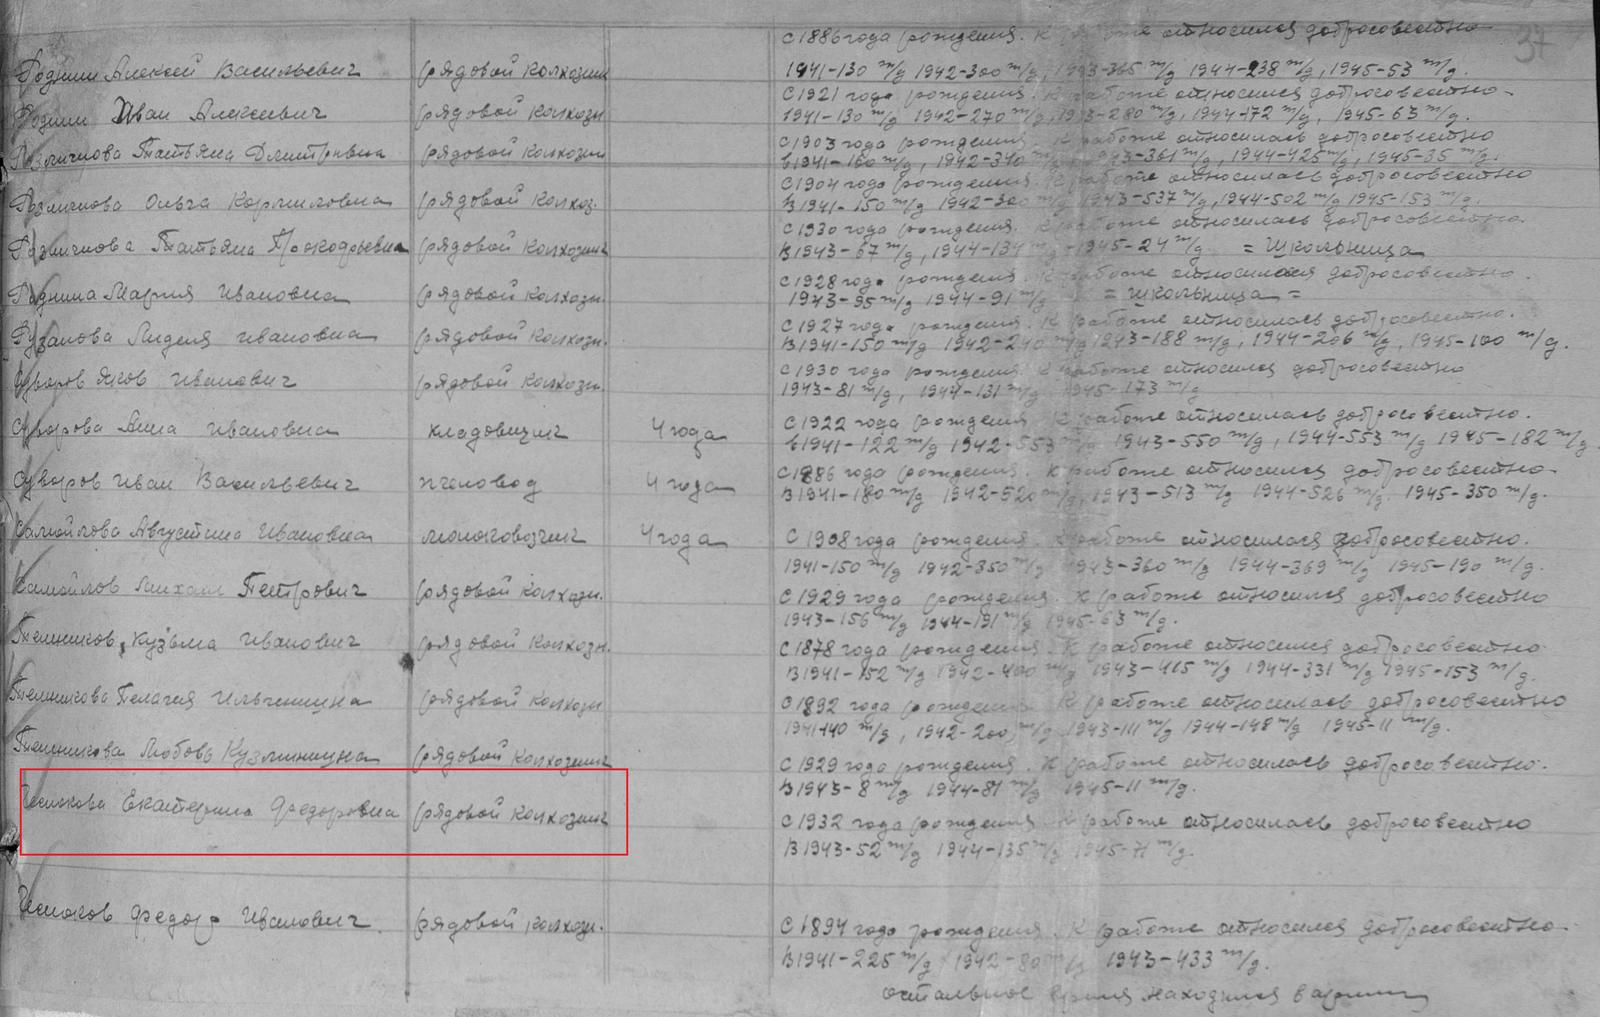 37
с 1886 года рождения. К работе относился добросовестно
Роднин Алексей Васильевич рядовой колхозник 1941-130 т/д 1942-300 т/д, 1943-365 т/д 1944-238 т/д, 1945-53 т/д.
с 1921 года рождения. К работе относился добросовестно
Роднин Иван Алексеевич рядовой колхозн 1941-130 т/д 1942-270 т/д, 1943-280 т/д, 1944-172 т/д, 1945-63 т/д.
с 1903 года рождения. К работе относилась добросовестно
Татьяна Дмитриевна рядовой колхозник в 1941-160 т/д, 1942-340 т/д 1943-361 т/д, 1944-425 т/д, 1945-35 т/д.
с 1904 года рождения. К работе относилась добросовестно
Ольга Корниловна рядовой колхоз. В 1941-150 т/д 1942-300 т/д 1943-537 т/д, 1944-502 т/д 1945-153 т/д.
с 1930 года рождения. К работе относилась добросовестно.
Татьяна Прокофьевна рядовой колхозник В 1943-67 т/д, 1944-134 т/д 1945-24 т/д = Школьница
с 1928 года рождения. К работе относилася добросовестно.
Роднина Мария Ивановна рядовой колхозн. 1943-95 т/д 1944-91 т/д = школьница =
с 1927 года рождения. К работе относилась добросовестно.
Рузанова Лидия Ивановна рядовой колхозн. В 1941-150 т/д 1942-240 т/д 1943-188 т/д, 1944-206 т/д, 1945-100 т/д.
с 1930 года рождения. К работе относился добросовестно
Суворов Яков Иванович рядовой колхозн. 1943-81 т/д, 1944-131 т/д 1945-173 т/д
с 1922 года рождения. К работе относилась добросовестно.
Суворова Анна Ивановна кладовщик 4 года в 1941-122 т/д 1942-553 т/д 1943-550 т/д, 1944-553 т/д 1945-182 т/д
с 1886 года рождения. К работе относился добросовестно
Суворов Иван Васильевич пчеловод 4 года В 1941-180 т/д 1942-520 т/д, 1943-513 т/д 1944-526 т/д. 1945-350 т/д.
Самойлова Августина Ивановна молоковозчик 4 года с 1908 года рождения. К работе относилася добросовестно.
1941-150 т/д 1942-350 т/д 1943-360 т/д 1944-369 т/д 1945-190 т/д.
Самойлов Михаил Петрович рядовой колхозн. с 1929 года рождения. К работе относился добросовестно
1943-156 т/д 1944-191 т/д 1945-63 т/д.
Темников Кузьма Иванович рядовой колхозн. с 1878 года рождения. К работе относился добросовестно.
В 1941-152 т/д 1942-400 т/д 1943-415 т/д 1944-331 т/д 1945-153 т/д.
Темникова Пелагия рядовой колхозн с 1892 года рождения. К работе относилась добросовестно
1941-140 т/д, 1942-200 т/д 1943-111 т/д 1944-148 т/д 1945-11 т/д.
Темникова Любовь Кузминична рядовой колхозник с 1929 года рождения. К работе относилась добросовестно.
В 1943-8 т/д 1944-81 т/д 1945-11 т/д.
Чеснокова Екатерина Федоровна рядовой колхозник с 1932 года рождения. К работе относилась добросовестно
В 1943-52 т/д 1944-135 т/д 1945-71 т/д.
Чесноков Федор Иванович. рядовой колхозн. с 1894 года рождения. К работе относился добросовестно
В 1941-225 т/д 1942-80 т/д 1943-433 т/д.
остальное время находился в армии